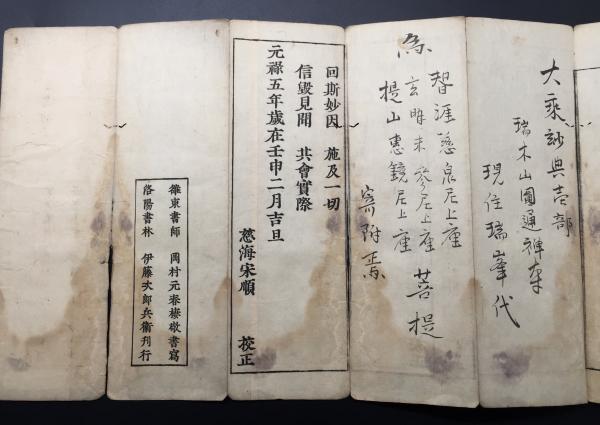 大乘妙典壱部
瑞木山圓通禅寺
現住瑞峯代
為
智涯慈泉尼上座
玄畔未参尼上座
提山恵鏡尼上座
菩提
寄附焉
回斯妙因 施及一切
信毀見聞 共會實際
元禄五年歳在壬申二月吉旦
慈海宋順 校正
雒東書師 岡村元春樣敬書寫
洛陽書林 伊藤次郎兵衛刊行